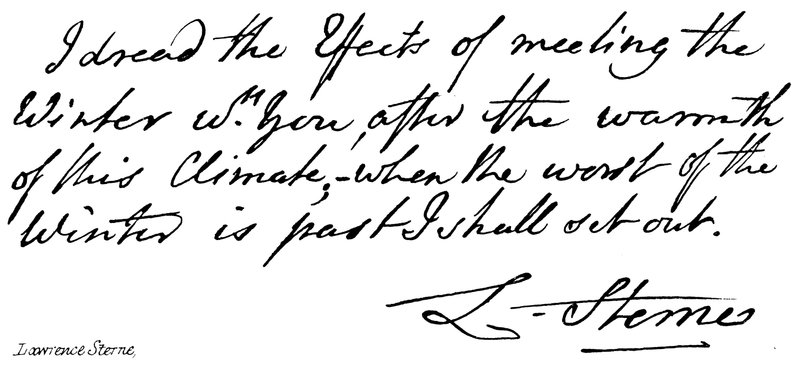 I dread the Effects of meeting the
Winter wth. You, after the warmth
of this Climate; – when the worst of the
Winter is past I shall set out.
L – Sterne
Lawrence Sterne,